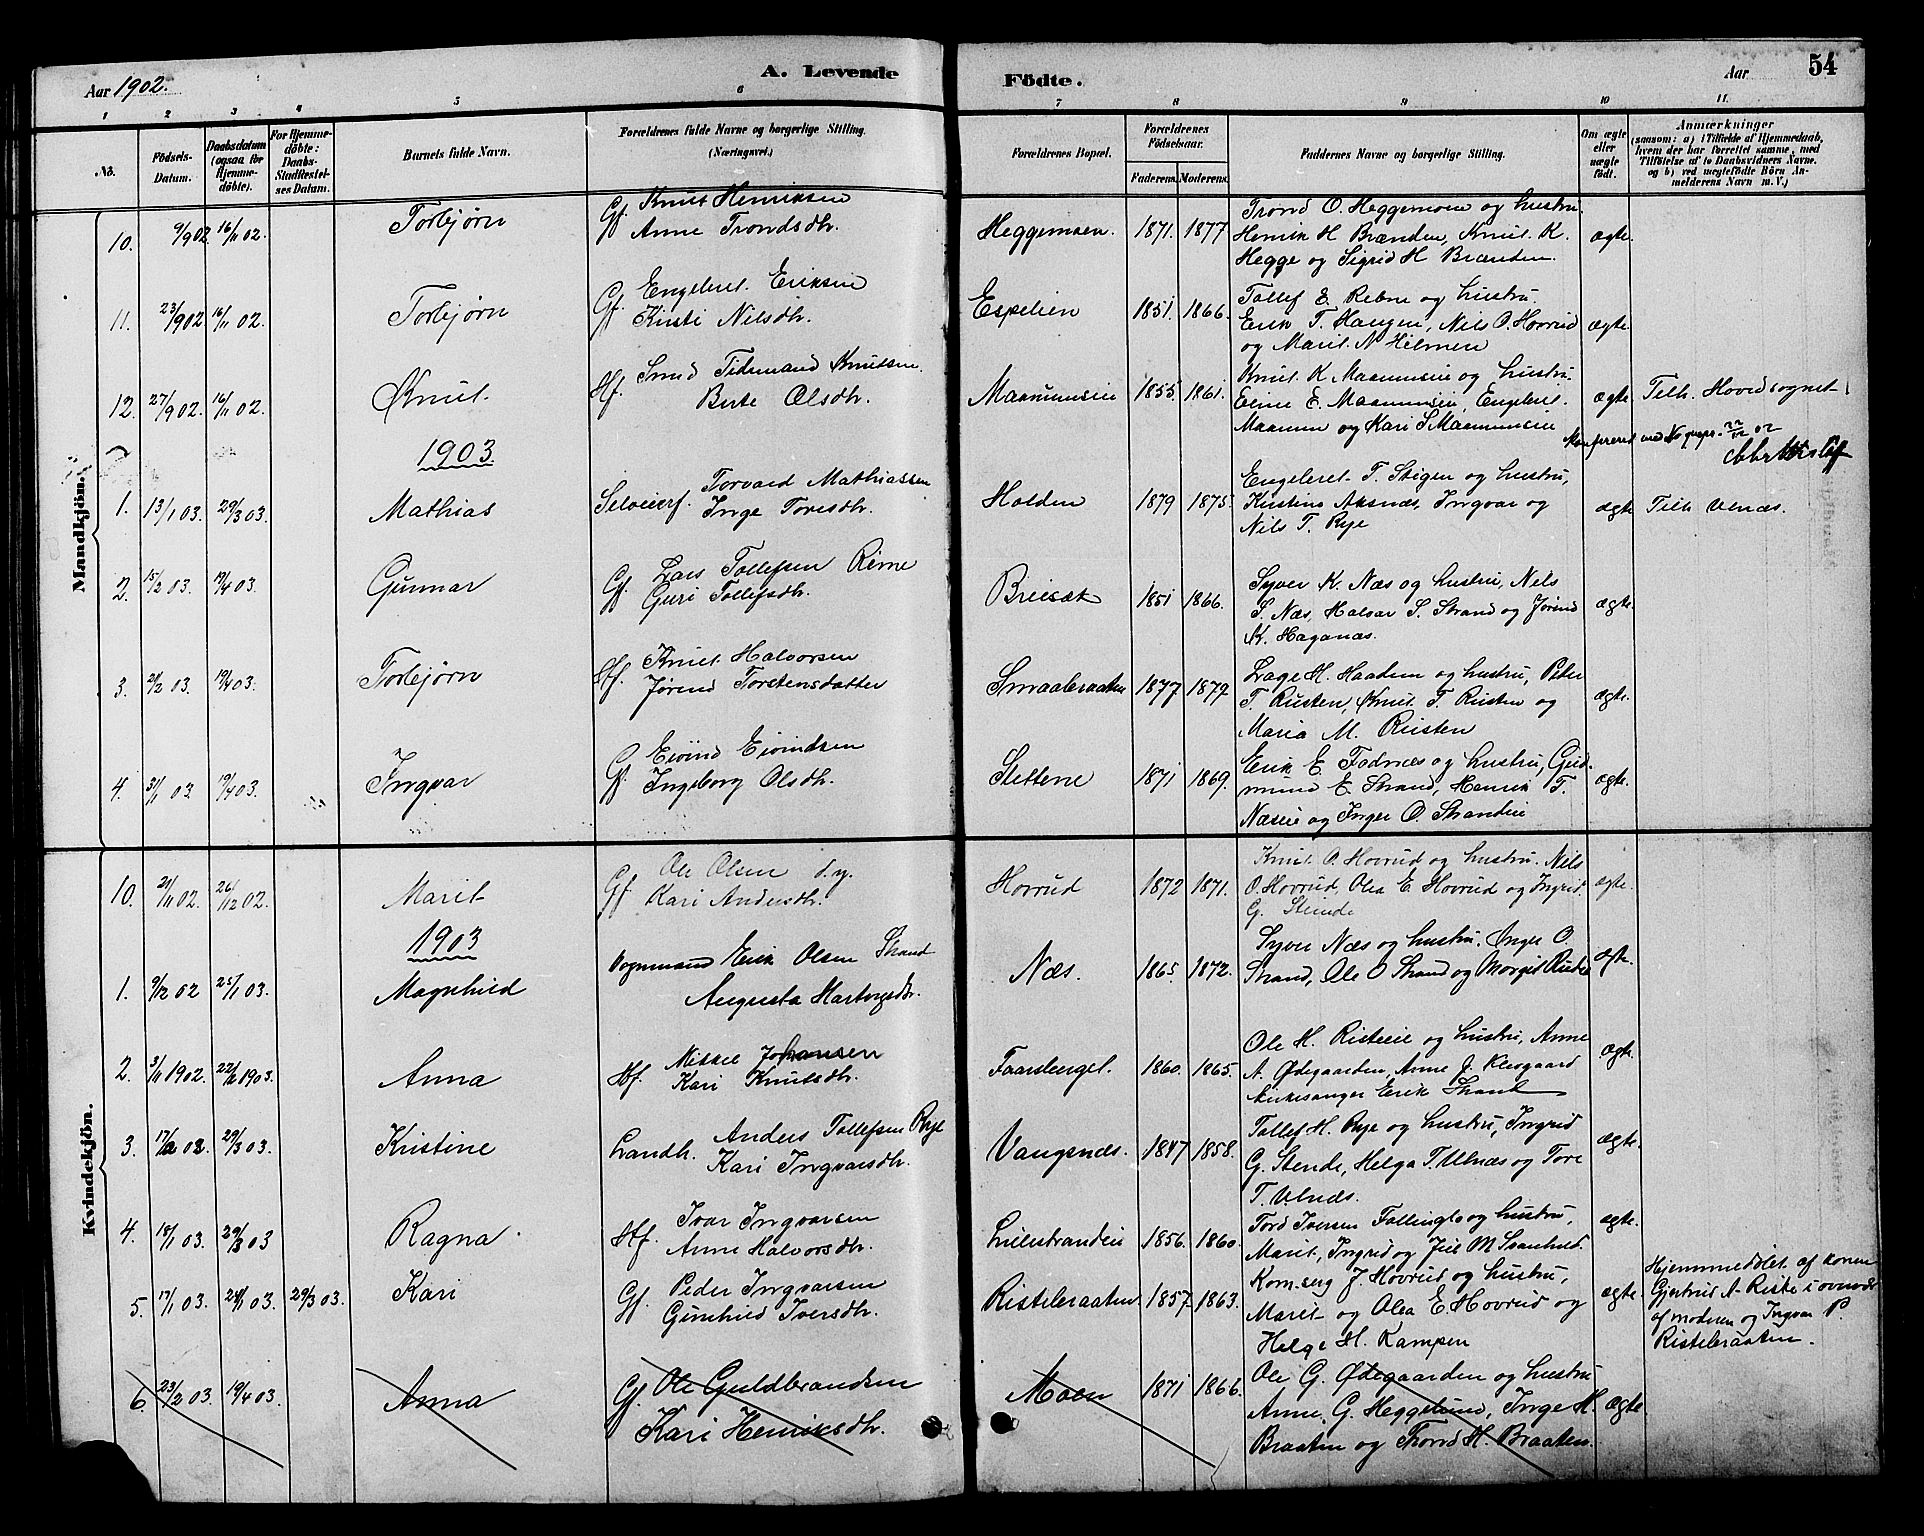 Aar 1902.
A. Levende Födte.
Aar
54
1 2 3 4 5 6 7 8 9 10 11.
No.
Födsels-Datum.
Daabsdatum (ogsaa for Hjemme-döbte).
For Hjemme-döbte: Daabs-Stadfæstel-ses Datum.
Barnets fulde Navn.
Forældrenes fulde Navne og borgerlige Stilling. (Næringsvei.)
Forældrenes Bopæl.
Forældrenes Födselsaar.
Faderens. Moderens.
Faddernes Navne og borgerlige Stilling.
Om ægte eller uægte født.
Anmærkninger
(saasom: a) i Tilfælde af Hjemmedaab, hvem der har forrettet samme, med Tilföielse af to Daabsvidners Navne. og b) ved uægtefödte Börn An-melderens Navn m. V.)
Mandkjön.
10. 9/9 02 16/11 02. Torbjørn Gf. Knut Henriksen
Anne Trondsdtr. Heggemoen. 1871. 1877 Trond O. Heggemoen og hustru.
Henrik H Brænden, Knut K.
Hegge og Sigrid H Brænden. ægte.
11. 23/9 02 16/11 02. Torbjørn Gf. Engebret Eriksen
Kirsti Nilsdtr. Espelien 1851. 1866. Tollef E. Rebne og hustru.
Erik T. Haugen, Nils O. Hovrud
og Marit N Hilmen ægte.
12. 27/9 02. 16/11 02. Knut Hf. Smed Tidemand Knutsen
Berte Olsdtr. Maarumseie 1855. 1861. Knut K Maarumseie og hustru.
Eline E. Maarumseie, Engebret
Maarum og Kari S Maarumseie ægte Tilh. Hovidsognet
Konfereret med No
1903.
1. 13/1 03. 29/3 03. Mathias Selveierf. Torvald Mathiassen
Inge Toresdtr. Holden 1879 1875. Engebret T. Stigen og hustru,
Kristine Aksnæs, Ingvar og
Nils T. Rye ægte Tilh Ulnæs.
2. 15/2 03. 19/4 03. Gunnar Gf. Lars Tollefsen Rime
Guri Tollefsdtr. Breisæt 1851 1866. Syver K. Næs og hustru, Nils
S. Næs, Halvar S. Strand og Jørend
K. Haganæs. ægte.
3. 2/2 03. 19/4 03. Torbjørn Hf. Knut Halvorsen
Jørend Torstensdatter Smaabraaten 1877 1879. Lage H. Haadem og hustru, Peter
T. Rusten, Knut T. Rusten og
Maria M. Rusten ægte.
4. 31/1 03. 19/4 03. Ingvar Gf. Eivind Eivindsen
Ingeborg Olsdtr. Slettene 1871 1869. Erik E. Fodnæs og hustru, Gud-
mund E Strand, Henrik T.
Næseie og Inger O. Strandeie ægte.
Kvindekjön.
10. 21/11 02. 26/12 02. Marit Gf. Ole Olsen d.y.
Kari Andersdtr. Hovrud 1872 1871. Knut O. Hovrud og hustru. Nils
O. Hovrud, Olea E. Hovrud og Ingrid
G. Stende ægte.
1903
1. 9/12 02 25/1 03. Magnhild Vognmand Erik Olsen Strand
Augusta Hartvigsdtr. Næs. 1865 1872. Syver Næs og hustru. Inger O.
Strand, Ole O Strand og Morgit Ruste ægte.
2. 3/11 1902. 22/2 1903. Anna Hf. Mikkel Johansen
Kari Knutsdtr. Faarstengel. 1860. 1865. Ole H. Risteeie og hustru, Anne
A. Ødegaarden, Anne J. Klesgaard
kirkesanger Erik Strand ægte.
3. 17/2 03. 29/3 03. Kristine Landh. Anders Tollefsen Rye
Kari Ingvarsdtr. Vangsnæs. 1847 1858. Tollef H. Rye og hustru, Ingrid
G. Stende, Helga T. Ulnæs og Tore
T. Ulnæs. ægte.
4. 18/1 03. 29/3 03 Ragna Hf. Ivar Ingvarsen
Anne Halvorsdtr. Lillestrandeie 1856. 1860. Tord Iversen Follinglo og hustru,
Marit, Ingrid og Joel M Svanhild. ægte.
5. 17/1 03. 24/1 03. 29/3 03. Kari Gf. Peder Ingvarsen
Gunhild Iversdtr. Ristebraaten 1857. 1863. Kom.serg J. Hovrud og hustru,
Marit og Olea E. Hovrud og
Helge H. Kampen ægte. Hjemmedøbt af konen
Gjertrud A. Riste i overvær
af moderen og Ingvar P.
Ristebraaten.
6. 23/2 03. 19/4 03. Anna Gf. Ole Guldbrandsen
Kari Henriksdtr. Moen 1871 1866. Ole G. Ødegaarden og hustru
Anne, G. Heggelund, Inge H.
Braaten og Trond H. Braaten. ægte